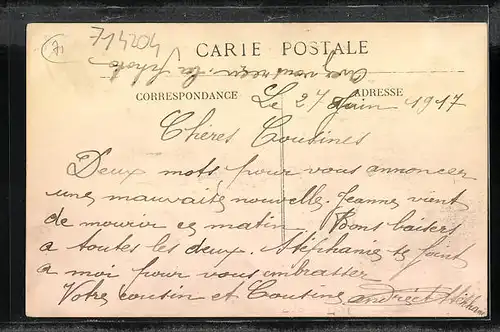 71
714204
CARIE POSTALE
avez vous reçu la photo
CORRESPONDANCE
ADRESSE
Le 27 Juin 1917
Cheres Cousines
Deux mots pour vous annoncer
une mauvaise nouvelle. Jeanne vient
de mourir ce matin. Bons baisers
a toutes les deux. Stéphanie se joint
a moi pour vous embrasser
Votre cousin et Cousine andré et Stéphanie